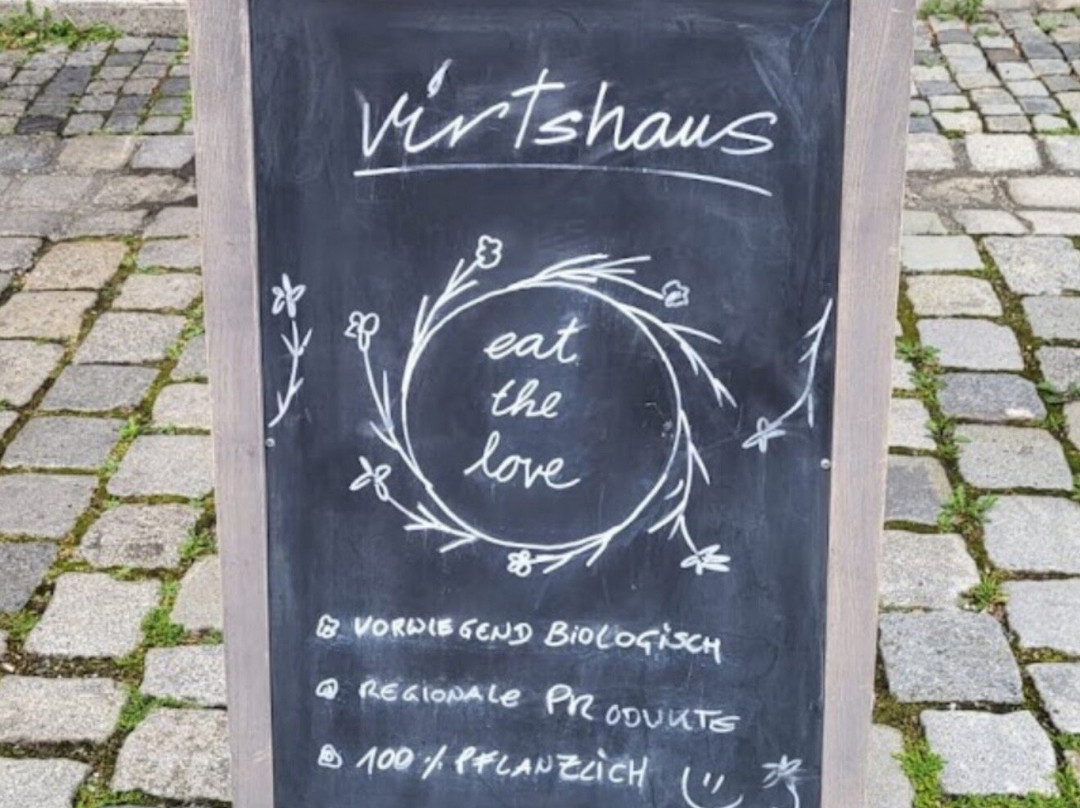 virtshaus
eat
the
love
VORWIEGEND BIOLOGISCH
REGIONALE PRODUKTE
100% PFLANZLICH